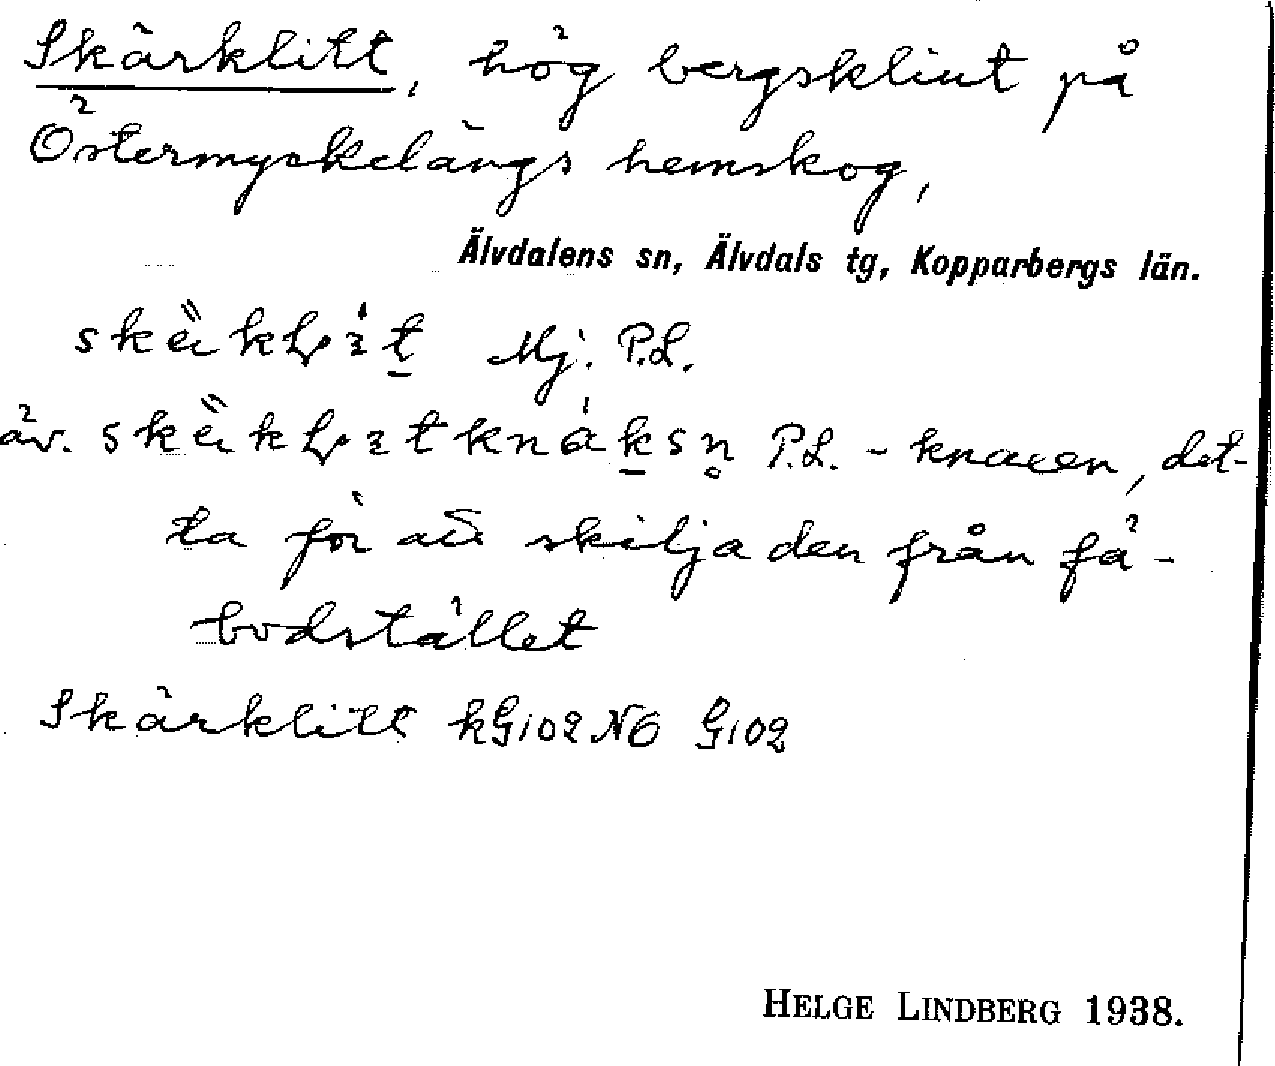 Skärklitt, hög bergsklint på
Östermyckelängs hemskog,
Älvdalens sn, Älvdals tg, Kopparbergs län.
Mj. P.L.
äv. P.L. - knaeen, det-
ta för att skilja den från fä-
bodstället
Skärklitt kG102NO G102
HELGE LINDBERG 1938.